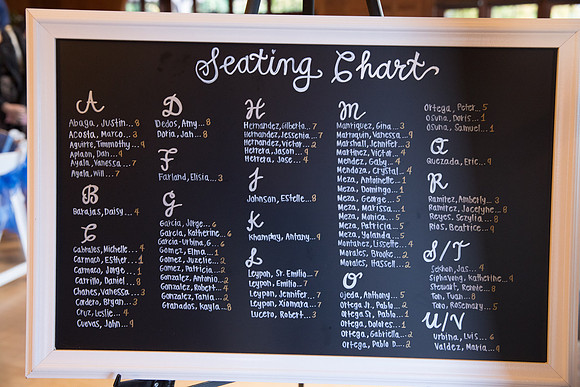 Seating Chart
A
Abaga, Justin... 8
Acosta, Marco... 3
Aguirre, Timmothy... 9
Aplaon, Dan... 9
Ayala, Vanessa... 7
Ayala, Will... 7
B
Barajas, Daisy... 4
C
Cabrales, Michelle... 4
Carmaco, Esther... 1
Carmaco, Jorge... 1
Carrillo, Daniel... 8
Chanes, Vanessa... 3
Cordero, Bryan... 3
Cruz, Leslie... 4
Cuevas, John... 9
D
Dedos, Amy... 8
Doria, Jan... 8
F
Farland, Elisia... 3
G
Garcia, Jorge... 6
Garcia, Katherine... 6
Garcia-Urbina, G... 6
Gomez, Elma... 1
Gomez, Juzelie... 2
Gomez, Patricia... 2
Gonzalez, Antonio... 2
Gonzalez, Robert... 4
Gonzalez, Tania... 2
Granados, Kayla... 8
H
Hernandez, Gilberto... 7
Hernandez, Jessenia... 7
Hernandez, Victor... 2
Herrera, Jason... 9
Herrera, Jose... 4
J
Johnson, Estelle... 8
K
Khamphay, Antany... 9
L
Leypon, Sr. Emilio... 7
Leypon, Emilio... 7
Leypon, Jennifer... 7
Leypon, Xiomara... 7
Lucero, Robert... 3
M
Manriquez, Gina... 3
Marroquin, Vanessa... 9
Marshall, Jennifer... 3
Martinez, Victor... 4
Mendez, Gaby... 4
Mendoza, Crystal... 4
Meza, Antoinette... 1
Meza, Domingo... 1
Meza, George... 5
Meza, Marissa... 1
Meza, Monica... 5
Meza, Patricia... 5
Meza, Yolanda... 5
Montanez, Lissette... 4
Morales, Brooke... 2
Morales, Hassell... 2
O
Ojeda, Anthony... 5
Ortega Jr., Pablo... 2
Ortega Sr., Pablo... 1
Ortega, Dolores... 1
Ortega, Gabriella... 2
Ortega, Pablo D... 2
Ortega, Peter... 5
Osuna, Doris... 1
Osuna, Samuel... 1
Q
Quezada, Eric... 9
R
Ramirez, Amberly... 3
Ramirez, Jocelyne... 8
Reyes, Sezylia... 8
Rios, Beatrice... 9
S/T
Sekhon, Jas... 4
Siphavong, Katherine... 9
Stewart, Rennie... 8
Tan, Tuan... 8
Toro, Rosemary... 5
U/V
Urbina, Luis... 6
Valdez, Maria... 9